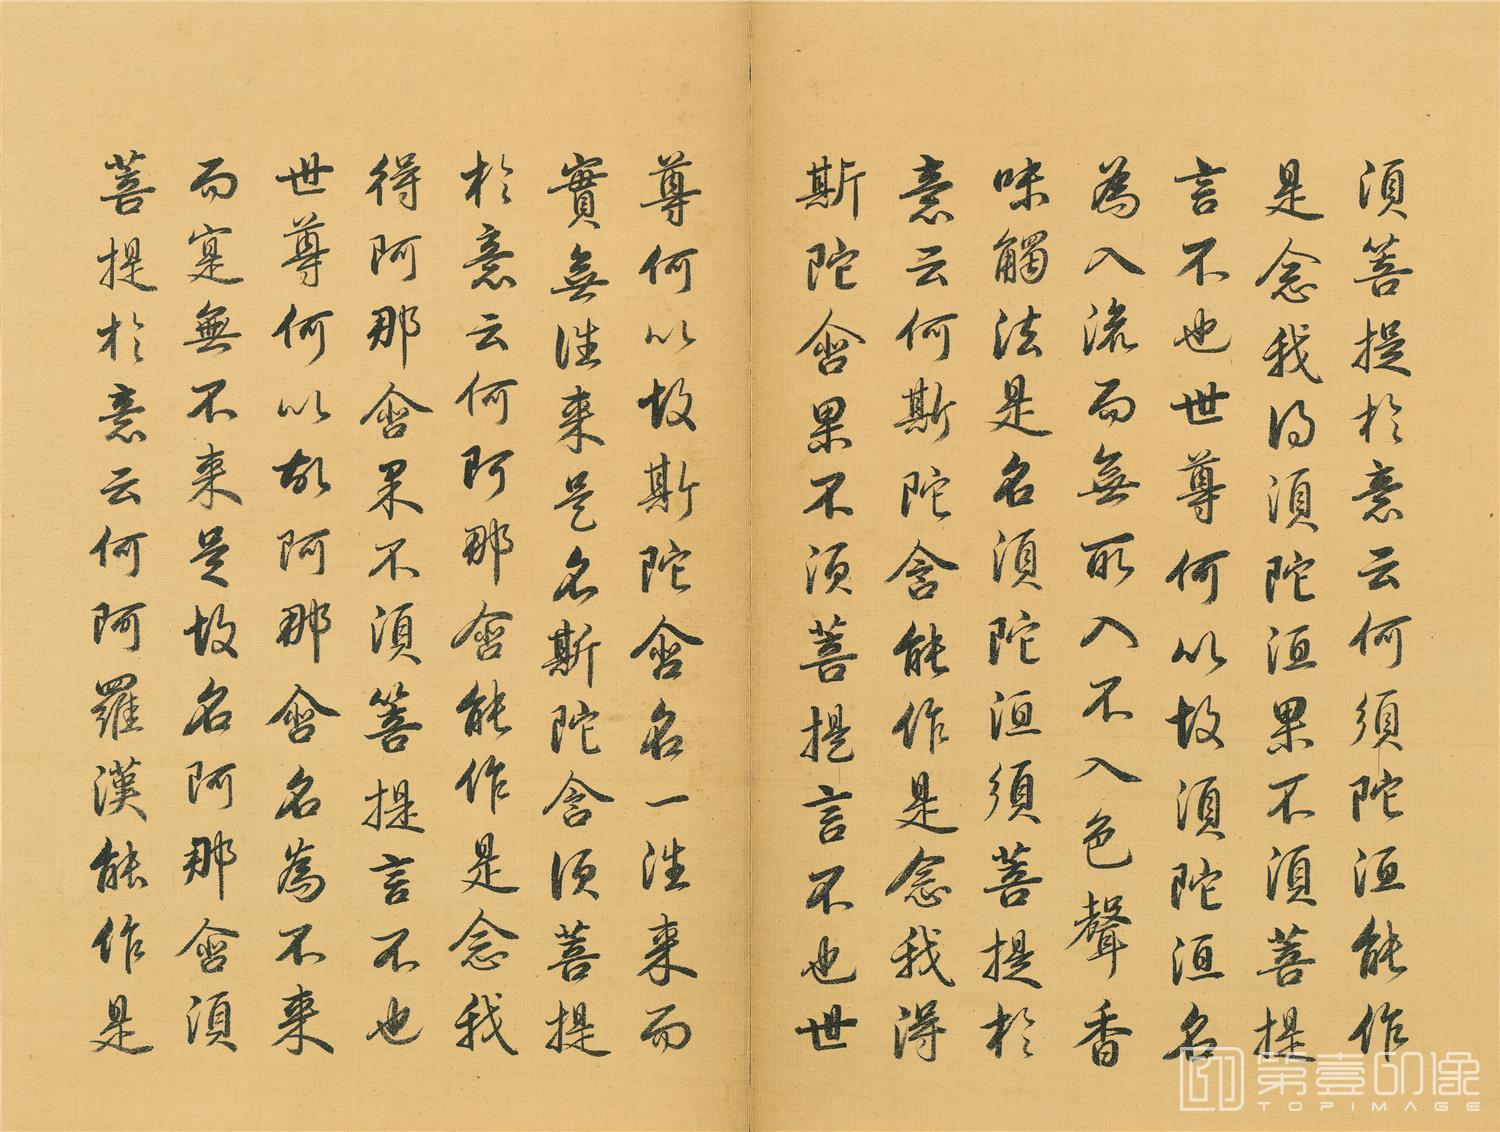 須菩提於意云何須陀洹能作
是念我得須陀洹果不須菩提
言不也世尊何以故須陀洹名
為入流而無所入不入色聲香
味觸法是名須陀洹須菩提於
意云何斯陀含能作是念我得
斯陀含果不須菩提言不也世
尊何以故斯陀含名一往来而
實無往来是名斯陀含須菩提
於意云何阿那含能作是念我
得阿那含果不須菩提言不也
世尊何以故阿那含名為不来
而寔無不来是故名阿那含須
菩提於意云何阿羅漢能作是
第壹印像
TOPIMAGE